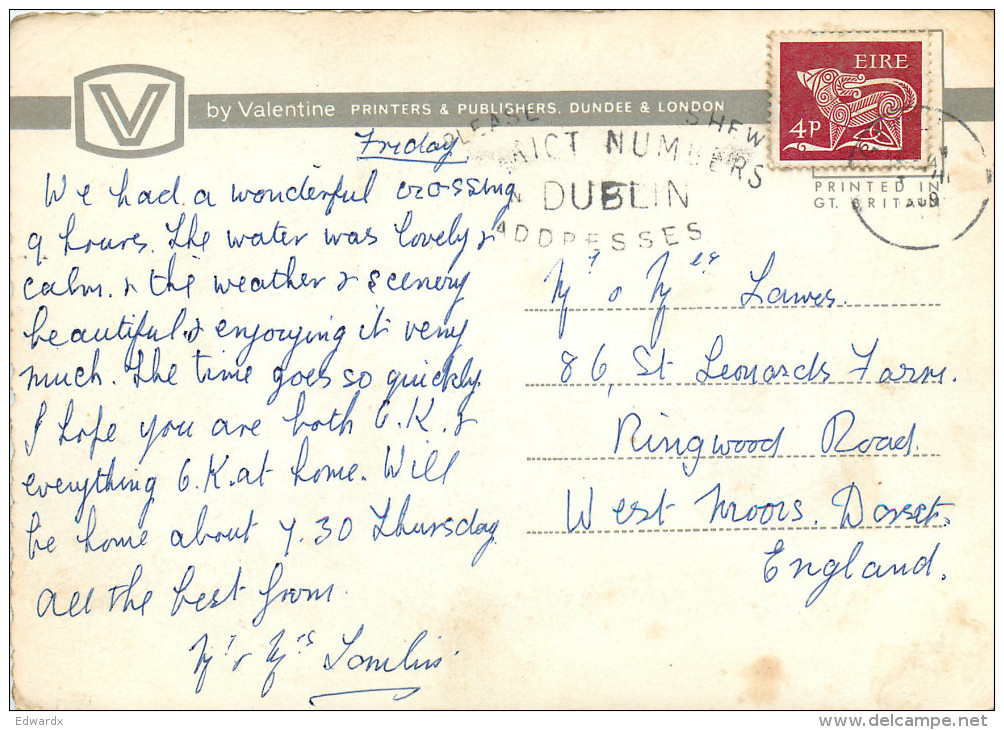 V by Valentine PRINTERS & PUBLISHERS. DUNDEE & LONDON
EIRE
4P
PLEASE SHEW
NUMBERS
DUBLIN
ADDRESSES
PRINTED IN
GT. BRITAIN
Friday
We had a wonderful crossing
9 hours. The water was lovely &
calm. & the weather & scenery
beautiful. & enjoying it very
much. The time goes so quickly.
I hope you are both O.K. &
everything O.K. at home. Will
be home about 7.30 Thursday
all the best from.
Mr & Mrs Tomlin.
Mr & Mrs Lawes.
86, St Leonards Farm.
Ringwood Road.
West Moors. Dorset.
England.
Edwardx
www.delcampe.net